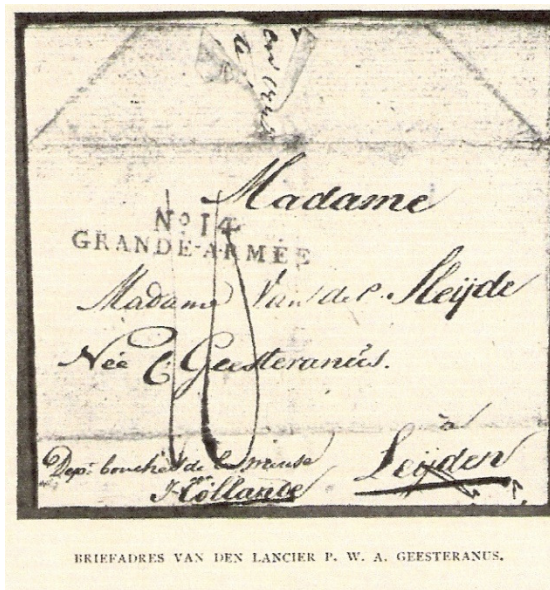 Madame
No 14
GRANDE-ARMÉE
Madame Van der Heijde
Née C. Geesteranus.
à
Dept. bouches de la meuse Leijden
Hollande
BRIEFADRES VAN DEN LANCIER P. W. A. GEESTERANUS.